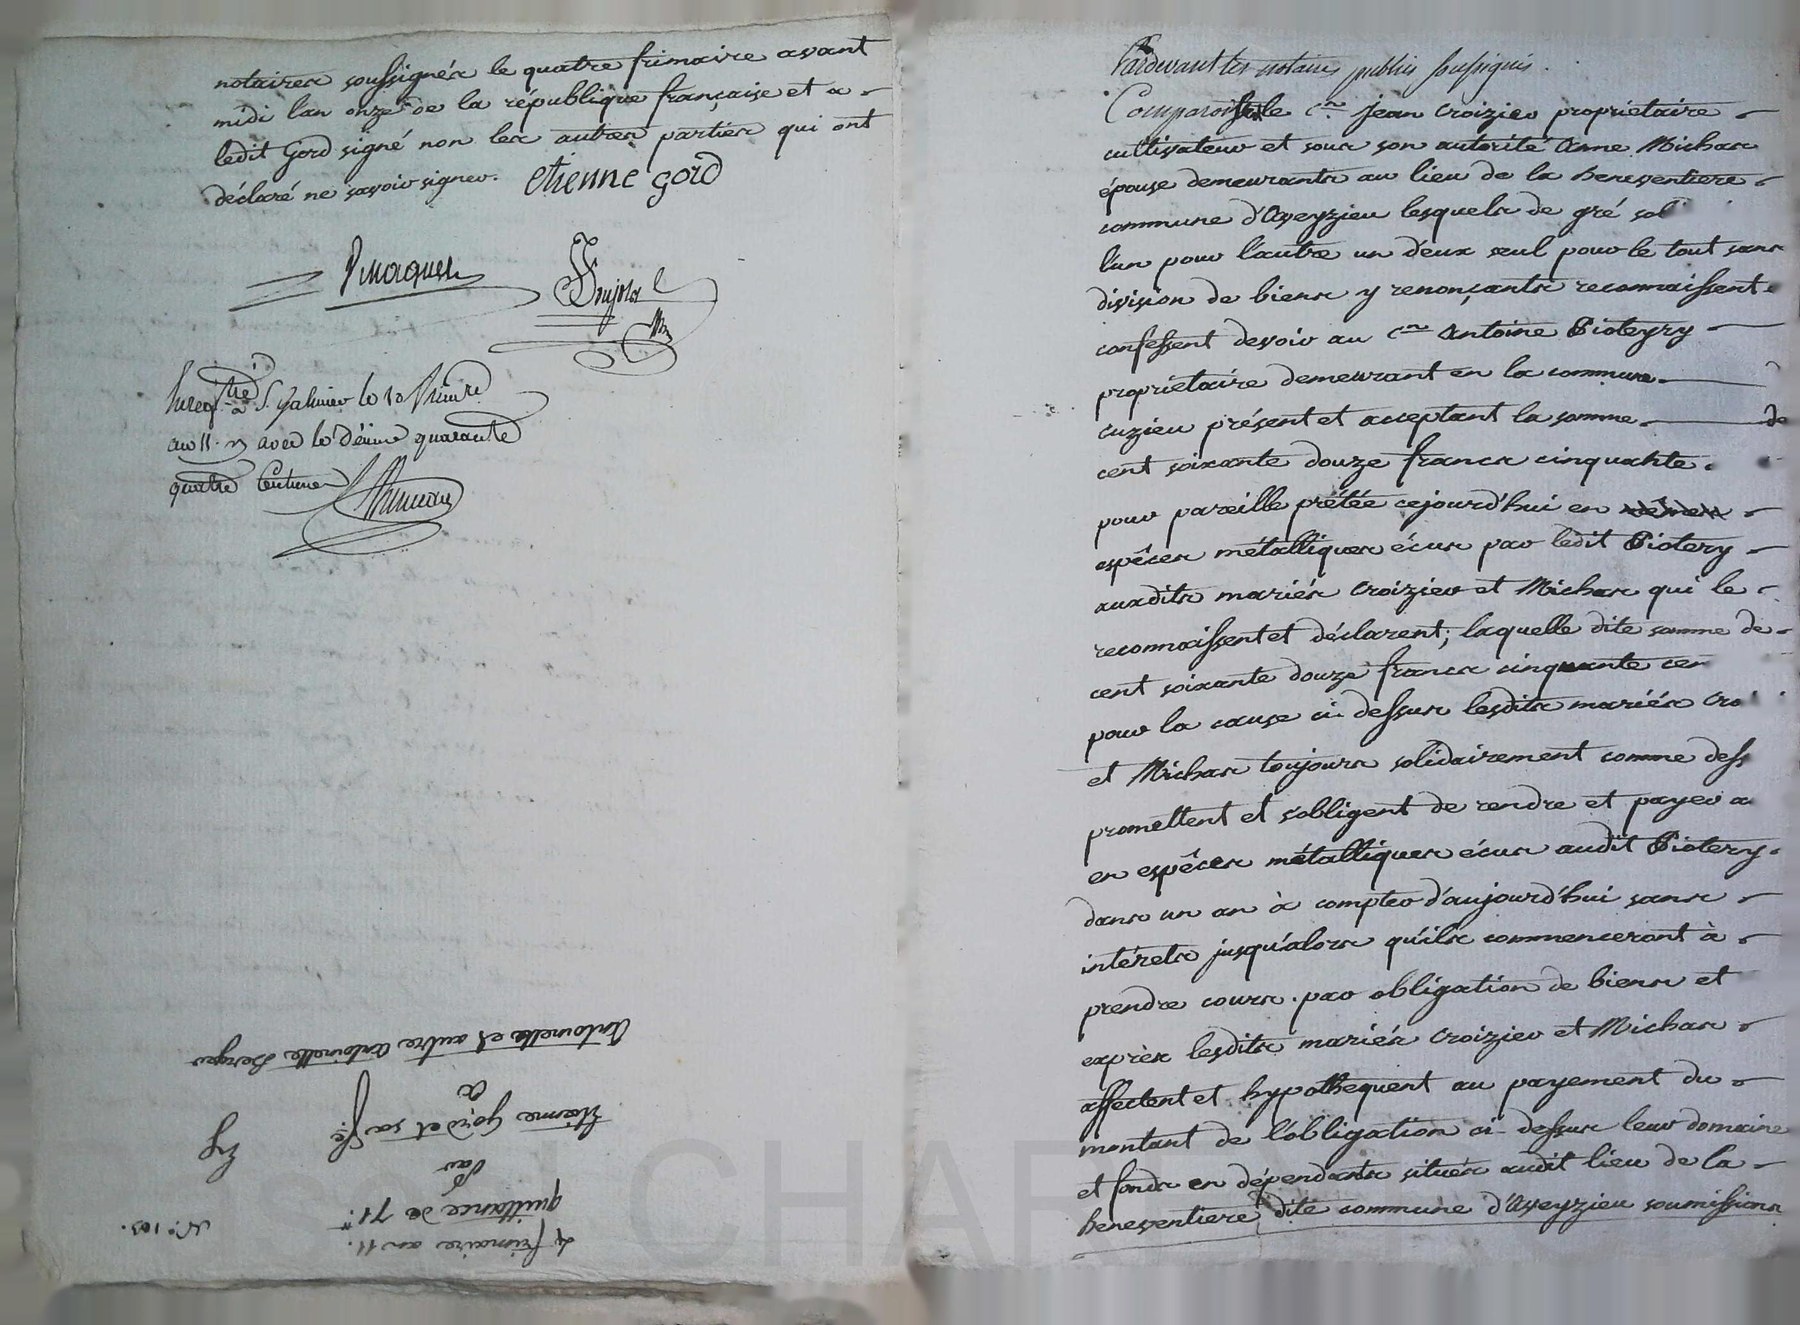 notaires soussignés le quatre frimaire avant
midi lan onze de la république française et a
ledit Gord signé non les autres parties qui ont
déclaré ne savoir signer. etienne gord
Enreg.tré à S. galmier le 10 frimre
an 11. avec le Déime quarante
quatre Centimes
Antoinette et autre antoinette Berger
a
Etienne Gord et sa fe.
par
quittance de 71.
4 frimaire an 11.
N.o 103.
Pardevant les notaires publics soussignés.
Comparoissent le c.en jean croizier propriétaire
cultivateur et sous son autorité Anne Michas
épouse demeurants au lieu de la beneventiere
commune d'aveyzieu lesquels de gré sol
l'un pour l'autre un d'eux seul pour le tout sans
division de biens y renonçants reconnaissent
confessent devoir au c.en antoine Pioteyry
propriétaire demeurant en la commune
cuzieu présent et acceptant la somme de
cent soixante douze francs cinquante
pour pareille prêtée cejourd'hui en
espêces métalliques écus par ledit Piotery
auxdits mariés croizier et Michas qui le
reconnaissent et déclarent; laquelle dite somme de
cent soixante douze francs cinquante cen
pour la cause ci-dessus lesdits mariés cro
et Michas toujours solidairement comme dess
promettent et s'obligent de rendre et payer a
en espêces métalliques écus audit Piotery
dans un an à compter d'aujourd'hui sans
intérets jusqu'alors qu'ils commenceront à
prendre cours. par obligation de biens et
exprès lesdits mariés croizier et Michas
affectent et hypothequent au payement du
montant de l'obligation ci-dessus leur domaine
et fonds en dépendants situés audit lieu de la
beneventiere dite commune d'aveyzieu soumissions
CHAR